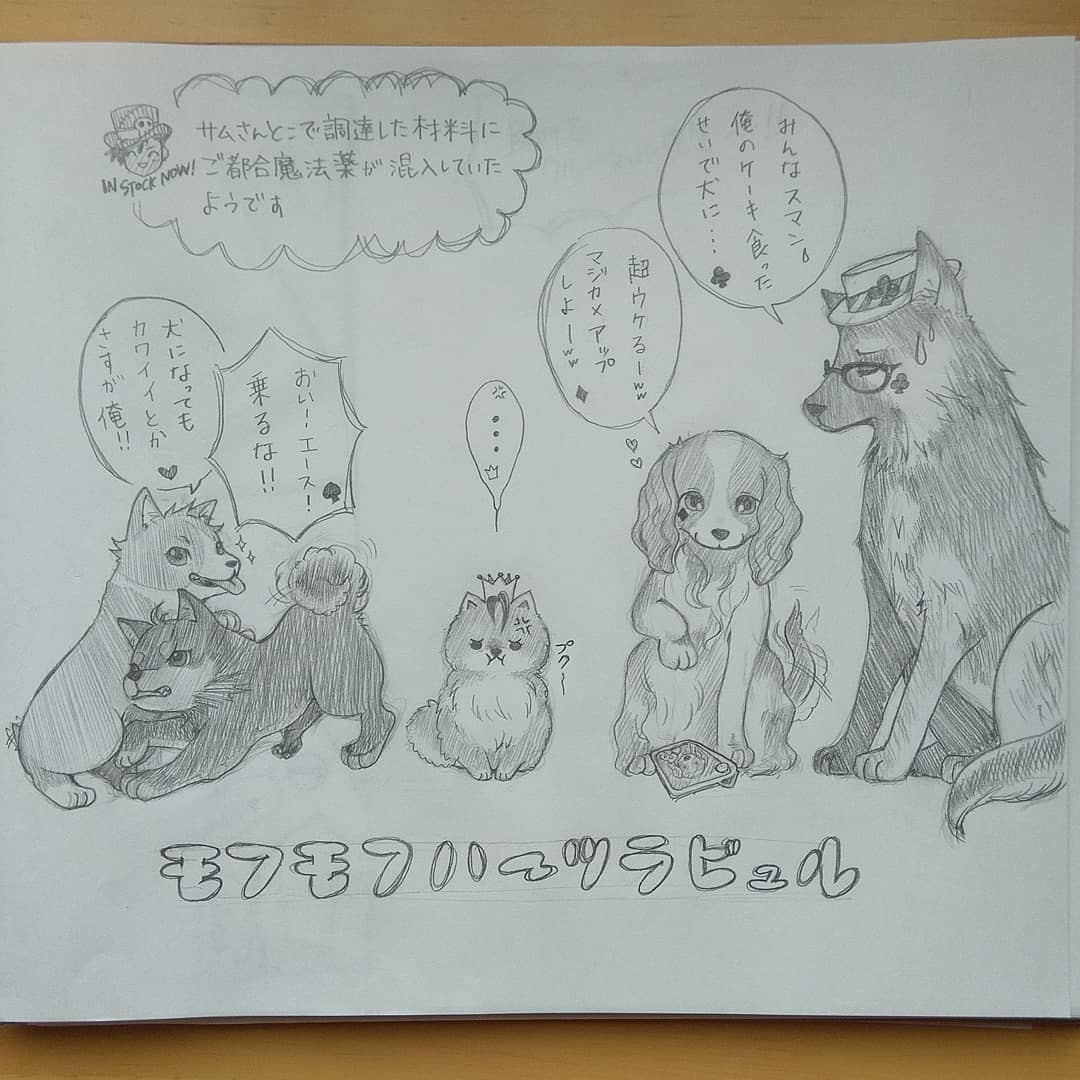 サムさんとこで調達した材料に
ご都合魔法薬が混入していた
ようです
IN STOCK NOW!
みんなスマン。
俺のケーキ食った
せいで犬に・・・♣
超ウケるーww
マジカメアップ
しよーww♦
・・・
プクー
おいーエース!
乗るな!!♠
犬になっても
カワイイとか
さすが俺!!♥
モフモフハーツラビュル